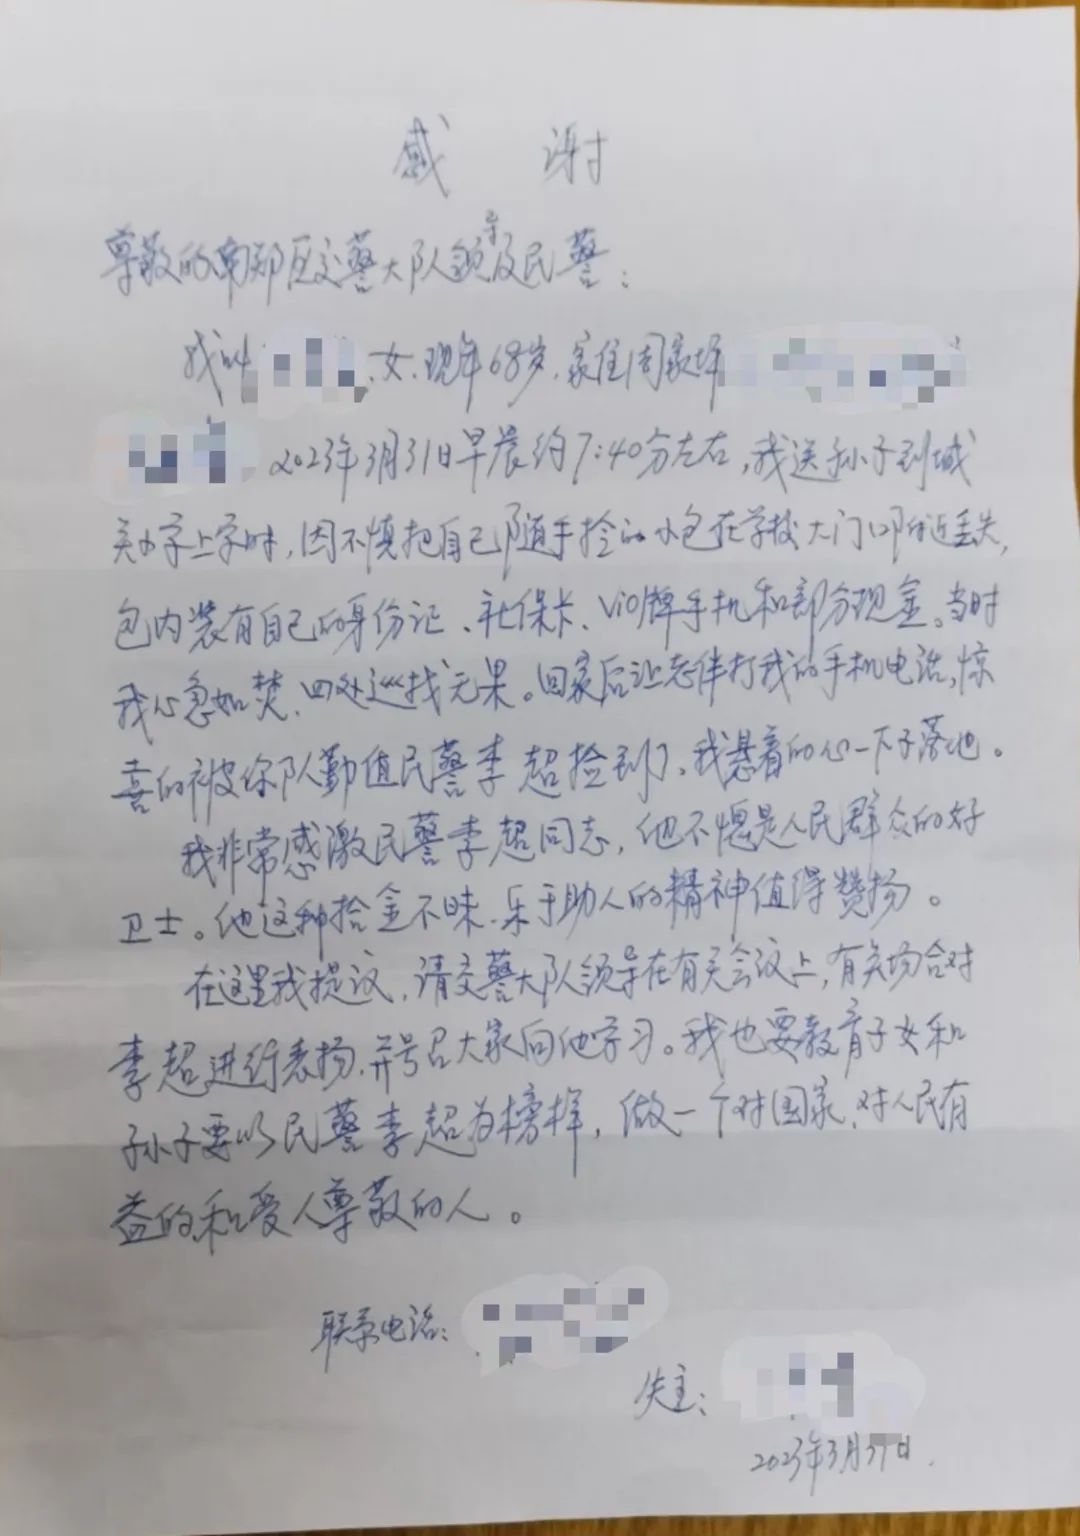 感 谢
尊敬的南郑区交警大队领导及民警：
我叫 、女、现年68岁、家住周家坪
2023年3月31日早晨约7:40分左右，我送孙子到城
关小学上学时，因不慎把自己随手拎的小包在学校大门口附近丢失，
包内装有自己的身份证、社保卡、Vio牌手机和部分现金。当时
我心急如焚、四处巡找无果。回家后让老伴打我的手机电话，惊
喜的被你队勤值民警李超捡到了。我悬着的心一下子落地。
我非常感激民警李超同志，他不愧是人民群众的好
卫士。他这种拾金不昧、乐于助人的精神值得赞扬。
在这里我提议，请交警大队领导在有关会议上，有关场合对
李超进行表扬，并号召大家向他学习。我也要教育子女和
孙子要以民警李超为榜样，做一个对国家、对人民有
益的和受人尊敬的人。
联系电话：
失主：
2023年3月31日.